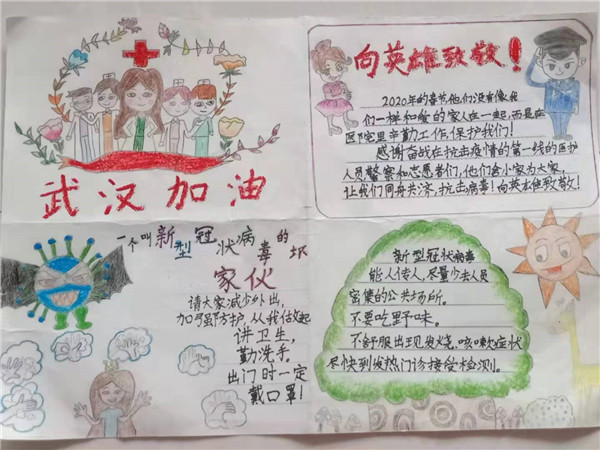 武汉加油
向英雄致敬！
2020年的春节他们没有像我
们一样和爱的家人在一起，而是在
医院里辛勤工作，保护我们！
感谢奋战在抗击疫情的第一线的医护
人员警察和志愿者们，他们舍小家为大家，
让我们同舟共济，抗击病毒！向英雄致敬！
一个叫新型冠状病毒的坏
家伙
请大家减少外出，
加强防护，从我做起
讲卫生，
勤洗手，
出门时一定
戴口罩！
新型冠状病毒
能人传人，尽量少去人员
密集的公共场所。
不要吃野味。
不舒服出现发烧、咳嗽症状
尽快到发热门诊接受检测。